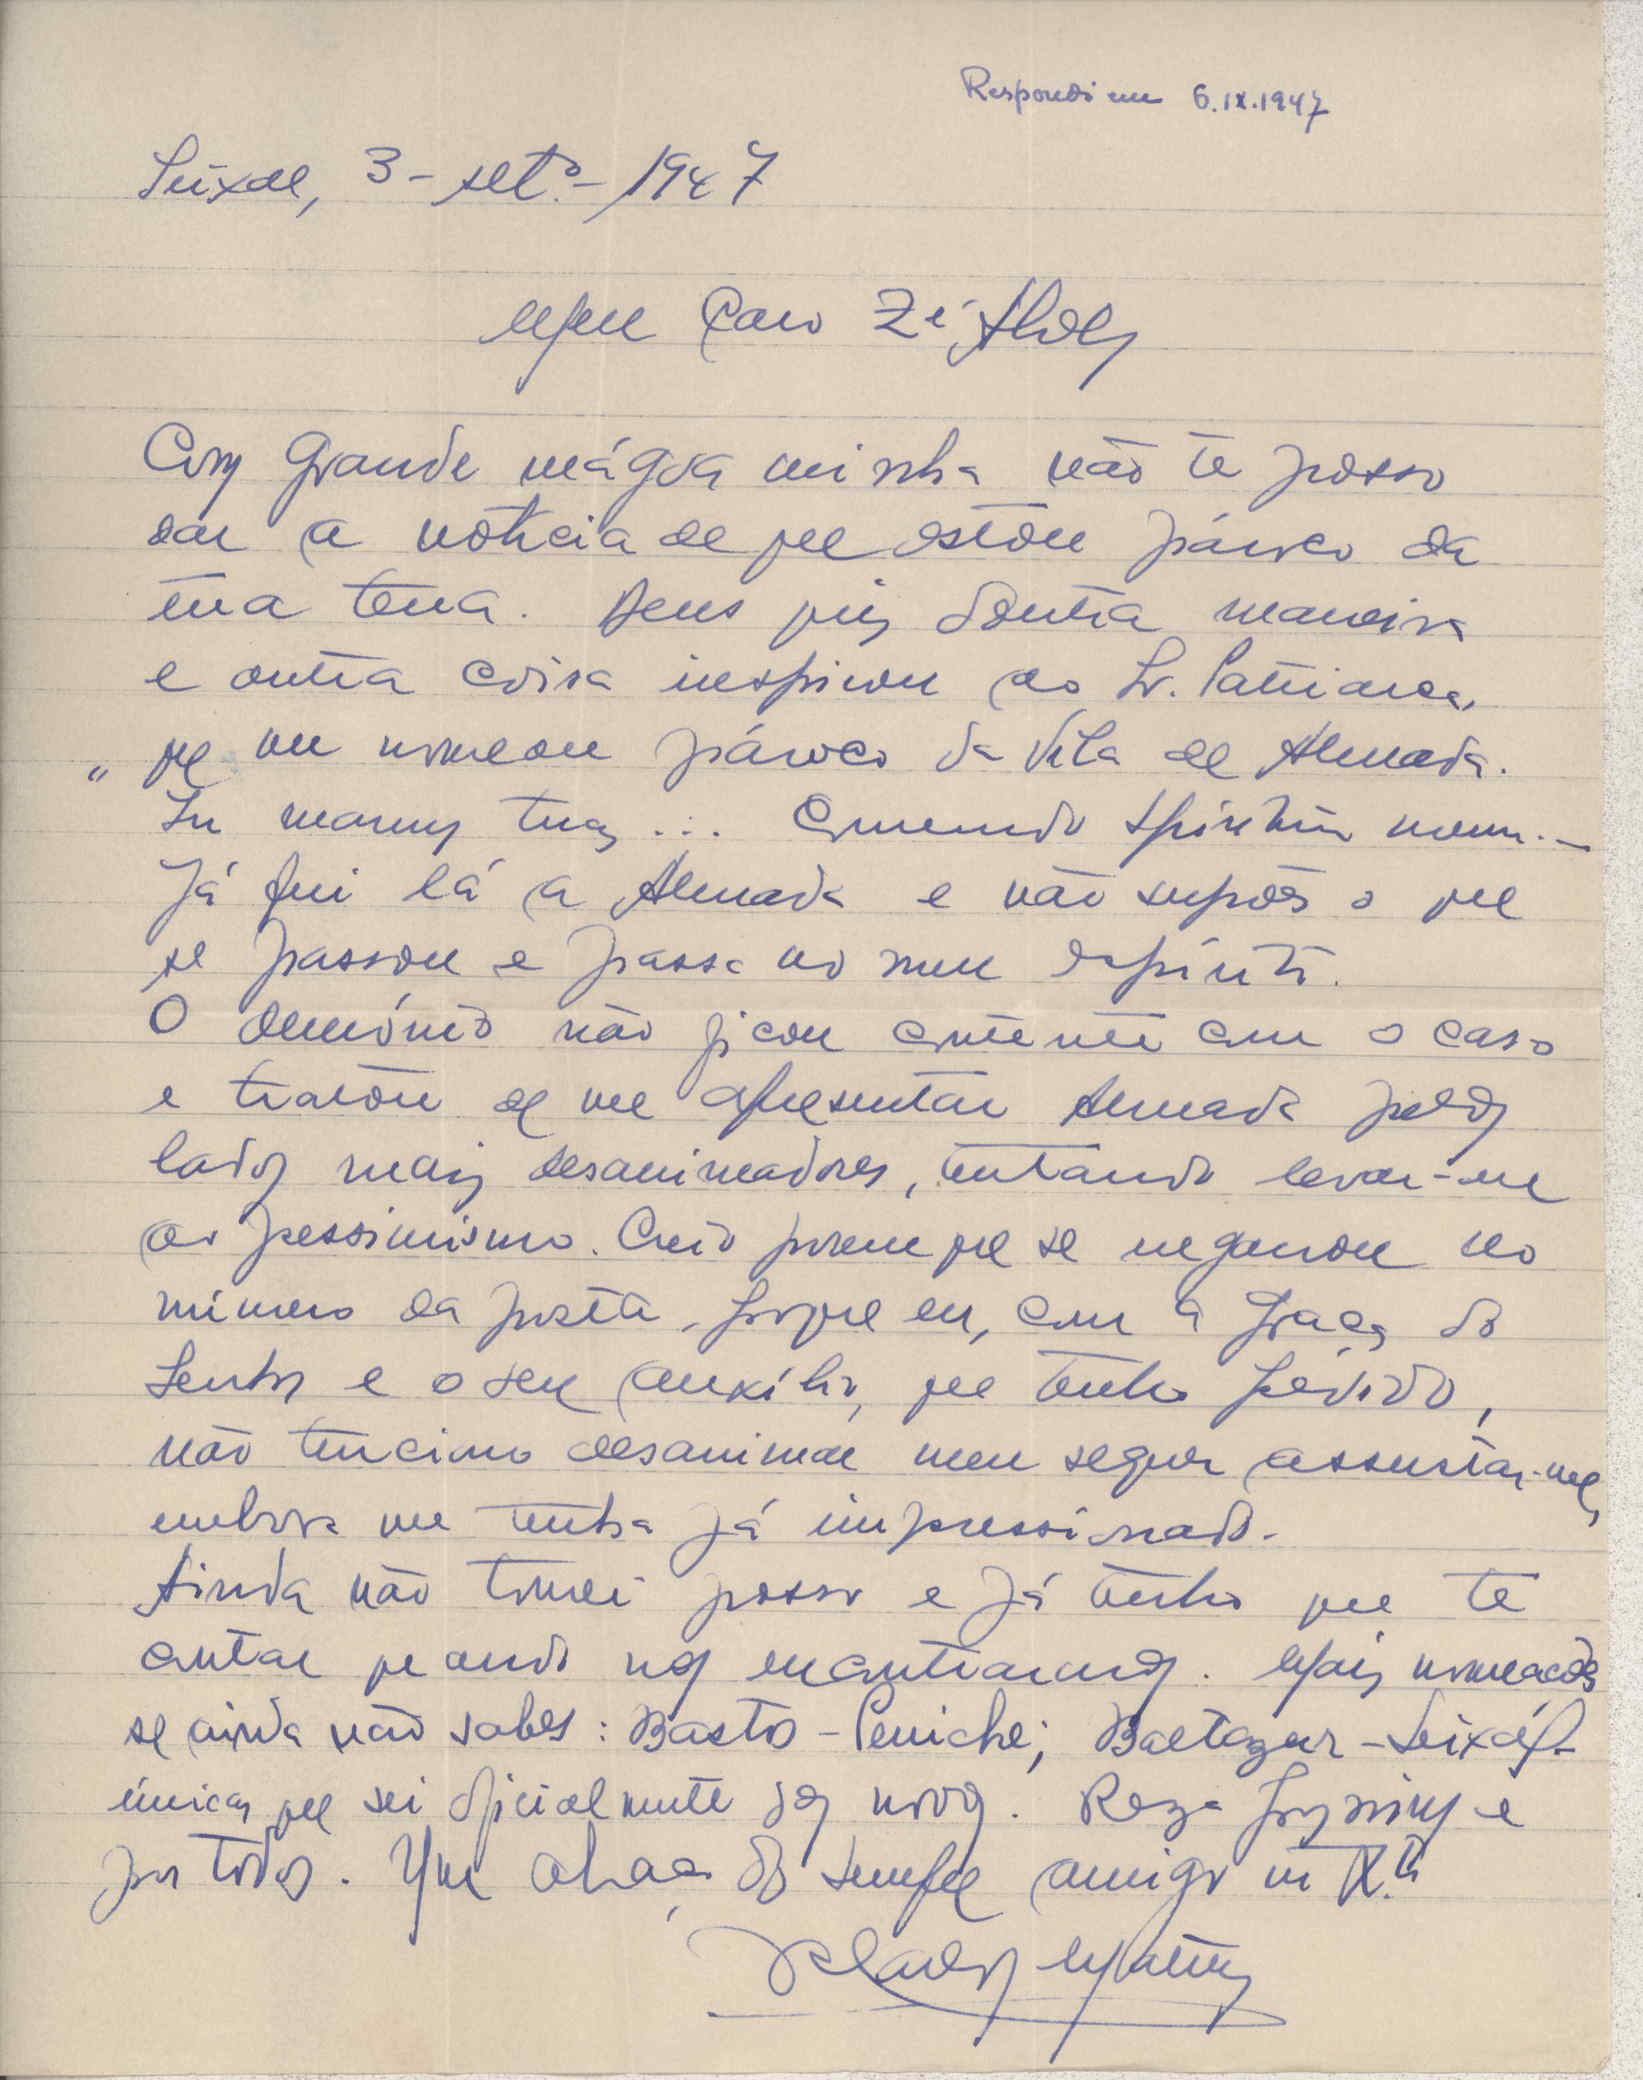 Respondi em 6.IX.1947
Seixal, 3-setº-1947
Meu Caro Zé Alves
Com grande mágoa minha não te posso
dar a notícia de que estou pároco da
tua terra. Deus quis doutra maneira
e outra coisa inspirou ao Sr. Patriarca,
" que me nomeou pároco da Vila de Almada.
In manus tuas... comendo spiritum meum.-
Já fui lá a Almada e não supões o que
se passou e passa no meu espírito.
O demónio não ficou contente com o caso
e tratou de me apresentar Almada pelos
lados mais desanimadores, tentando levar-me
ao pessimismo. Creio porem que se enganou no
número da porta, porque eu, com a graça do
Senhor e o seu auxílio, que tenho pedido,
não tenciono desanimar nem sequer assustar-me,
embora me tenha já impressionado.
Ainda não tomei posse e já tenho que te
contar quando nos encontrarmos. Mais nomeações
se ainda não sabes: Basto - Peniche; Baltazar - Seixal
únicas que sei oficialmente dos novos. Reza por mim e
por todos. Um abraço do sempre amigo in X.to
Mattos